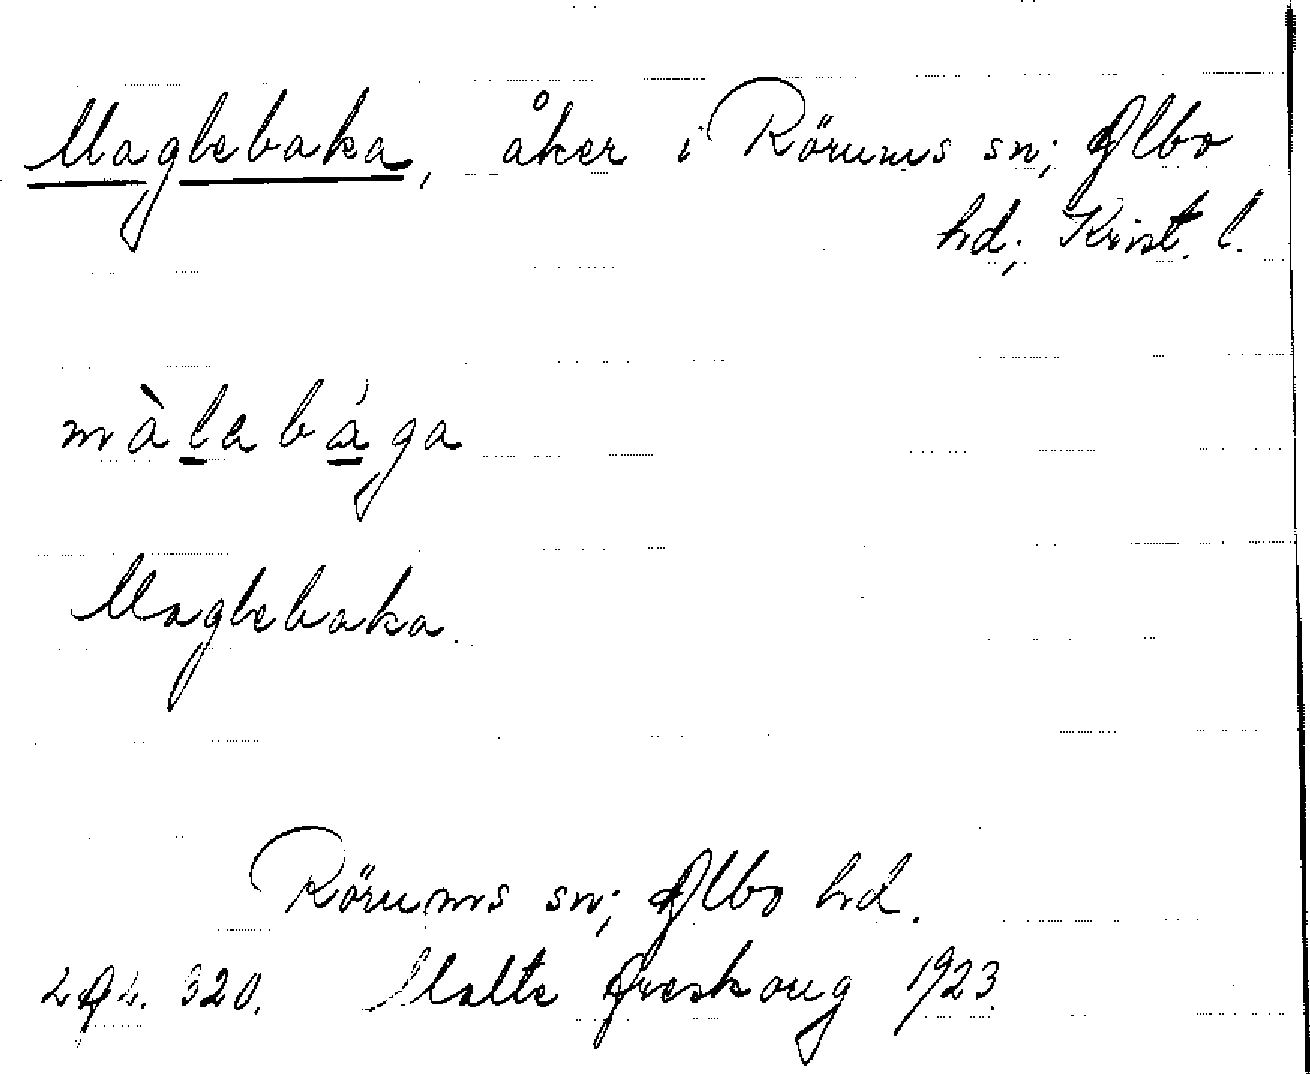 Maglebaka, åker i Rörums sn; Albo
hd; Krist. l.
màlabága
Maglebaka.
Rörums sn; Albo hd.
LAL. 320. Malte Areskoug 1923.